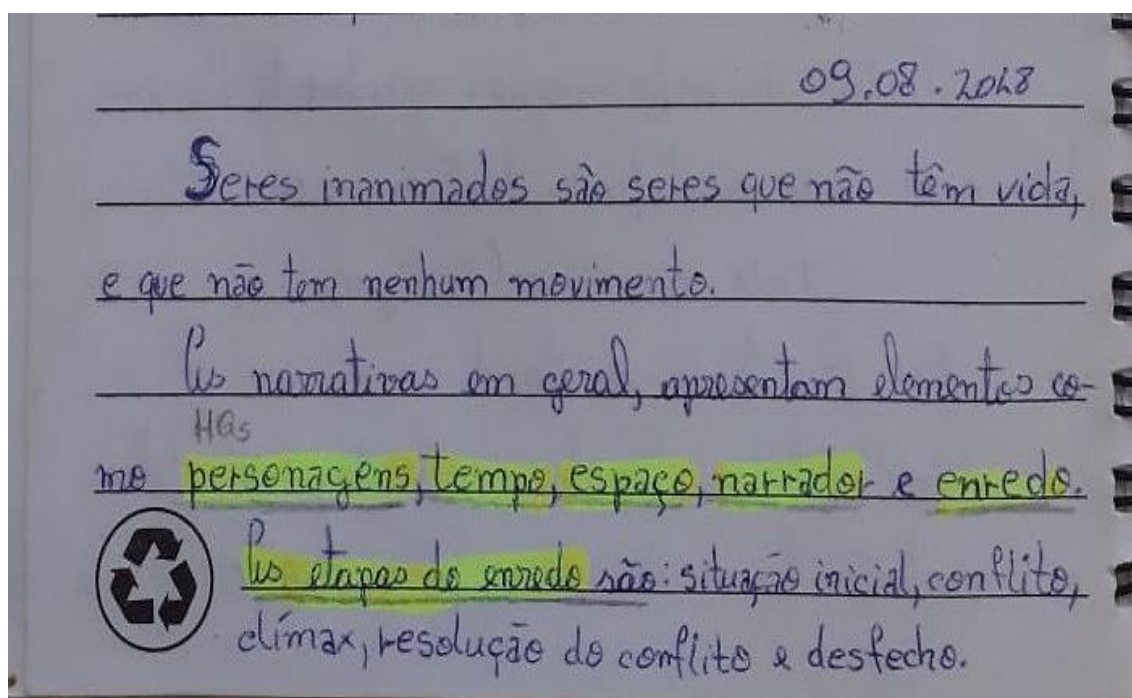 09.08.2018
Seres inanimados são seres que não têm vida,
e que não tem nenhum movimento.
As narrativas em geral, apresentam elementos co-
HQs
mo personagens, tempo, espaço, narrador e enredo.
As etapas do enredo são: situação inicial, conflito,
clímax, resolução do conflito e desfecho.